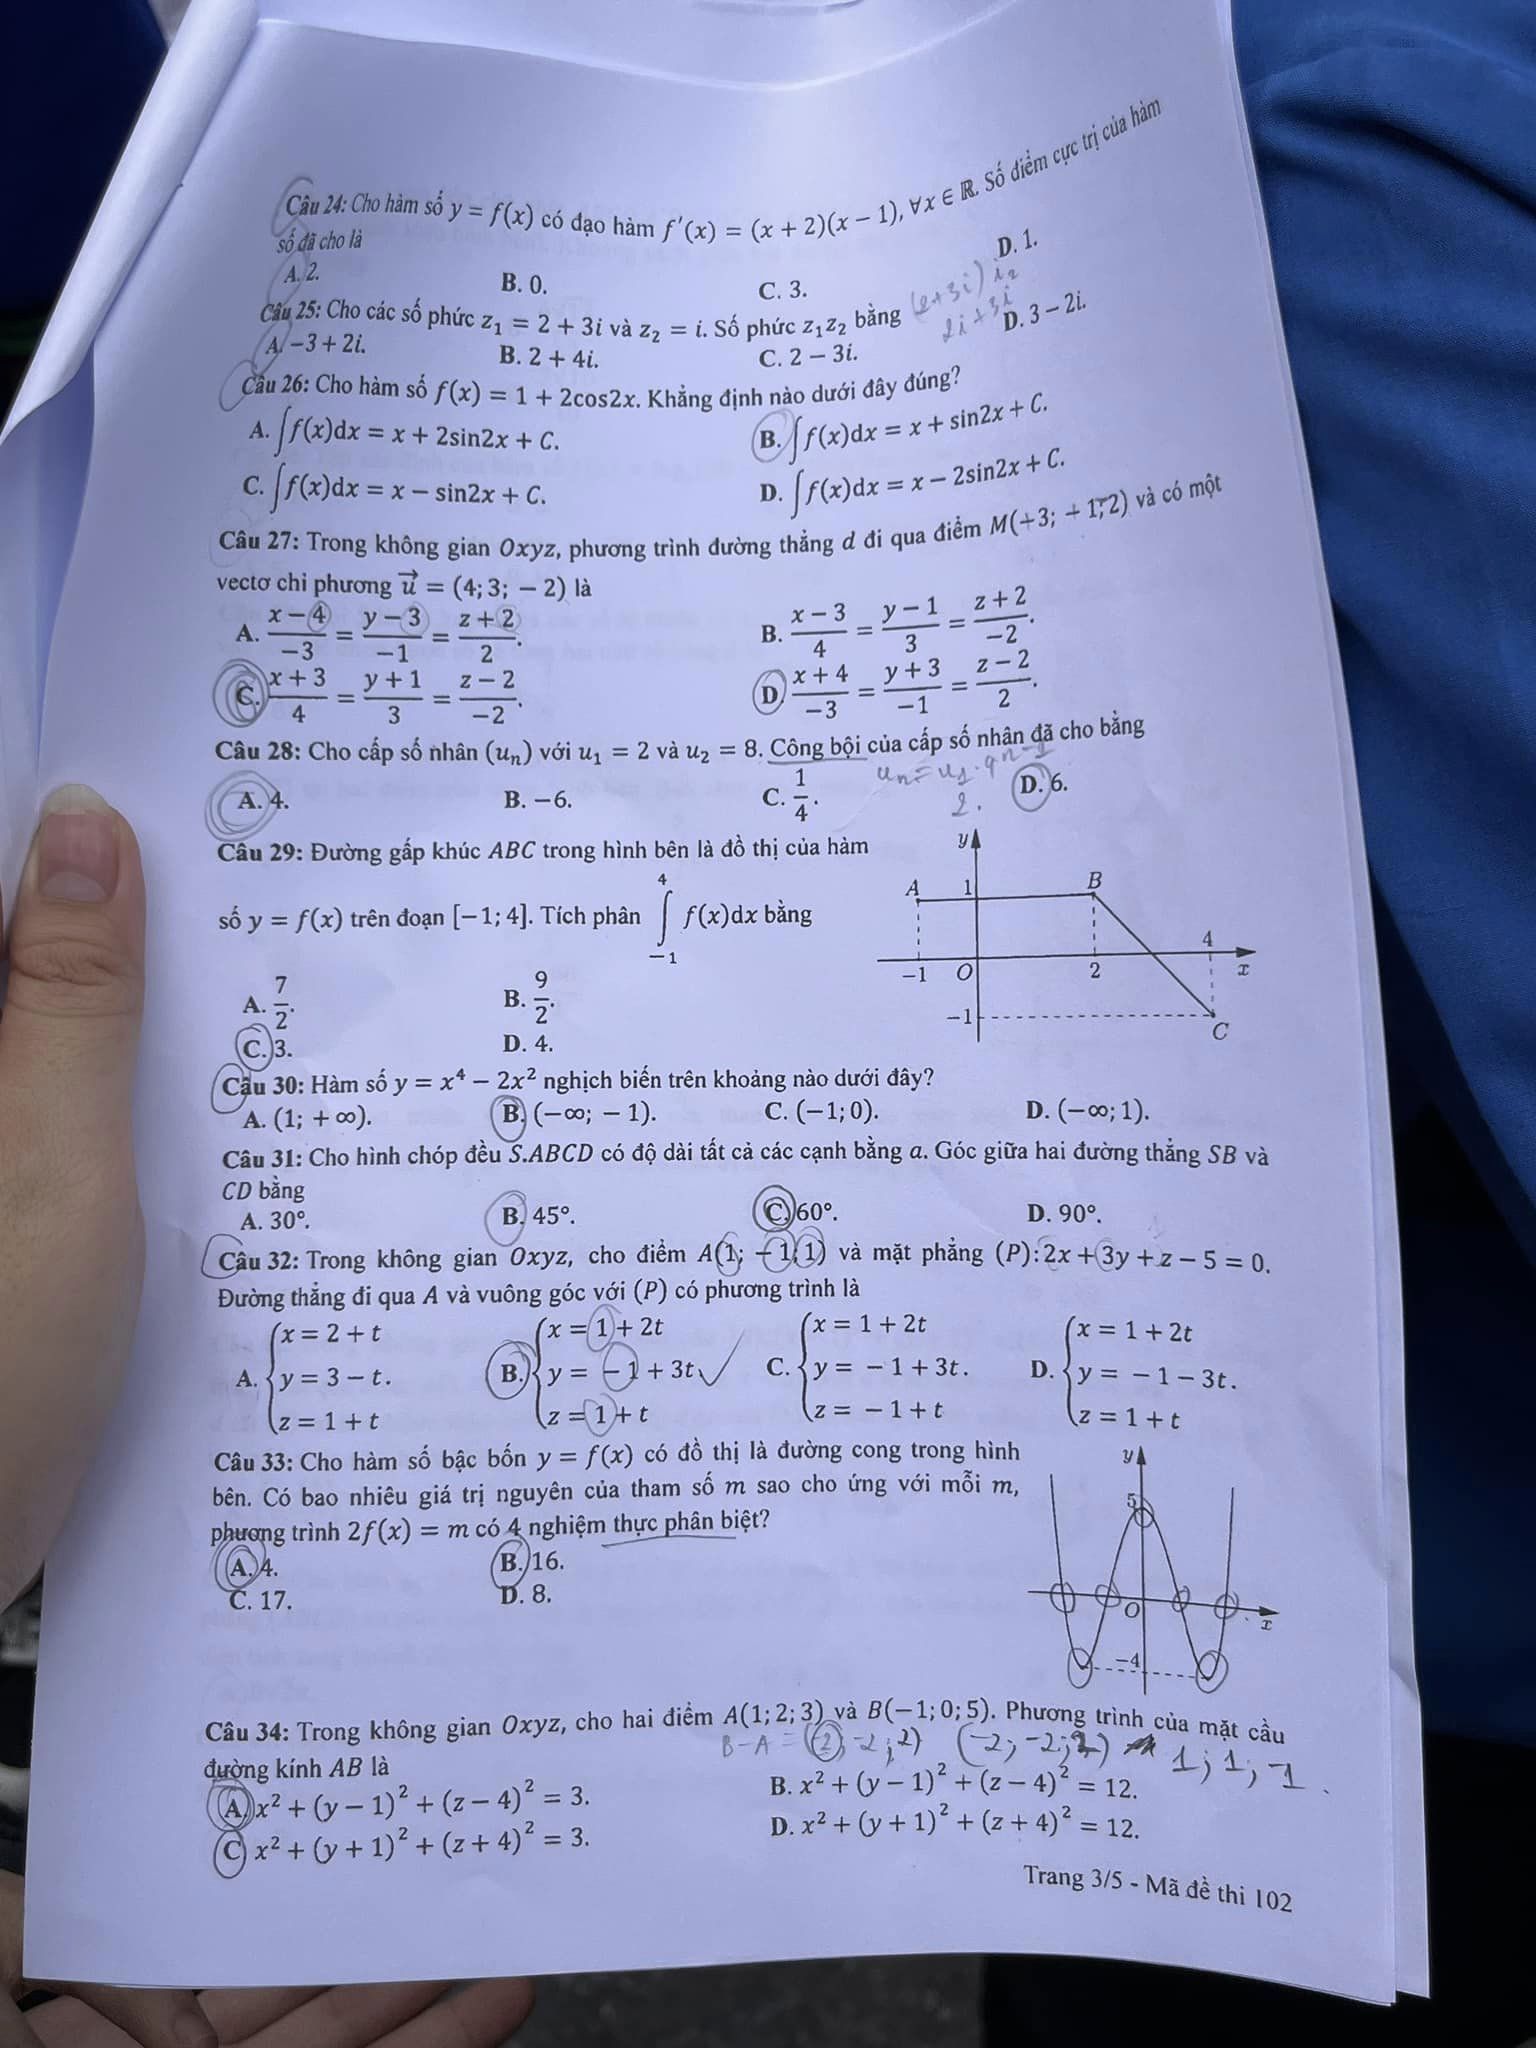 Câu 24: Cho hàm số y = f(x) có đạo hàm f'(x) = (x + 2)(x − 1), ∀x ∈ ℝ. Số điểm cực trị của hàm
số đã cho là
A. 2. B. 0. C. 3. D. 1.
Câu 25: Cho các số phức z₁ = 2 + 3i và z₂ = i. Số phức z₁z₂ bằng
(2+3i) i₂
2i + 3i
A. −3 + 2i. B. 2 + 4i. C. 2 − 3i. D. 3 − 2i.
Câu 26: Cho hàm số f(x) = 1 + 2cos2x. Khẳng định nào dưới đây đúng?
A. ∫f(x)dx = x + 2sin2x + C. B. ∫f(x)dx = x + sin2x + C.
C. ∫f(x)dx = x − sin2x + C. D. ∫f(x)dx = x − 2sin2x + C.
Câu 27: Trong không gian Oxyz, phương trình đường thẳng d đi qua điểm M(−3; −1; 2) và có một
vectơ chỉ phương u⃗ = (4; 3; − 2) là
A. (x − 4)/−3 = (y − 3)/−1 = (z + 2)/2. B. (x − 3)/4 = (y − 1)/3 = (z + 2)/−2.
C. (x + 3)/4 = (y + 1)/3 = (z − 2)/−2. D. (x + 4)/−3 = (y + 3)/−1 = (z − 2)/2.
Câu 28: Cho cấp số nhân (uₙ) với u₁ = 2 và u₂ = 8. Công bội của cấp số nhân đã cho bằng
uₙ = u₁ . qⁿ⁻¹
2.
A. 4. B. −6. C. 1/4. D. 6.
Câu 29: Đường gấp khúc ABC trong hình bên là đồ thị của hàm
số y = f(x) trên đoạn [−1; 4]. Tích phân ∫₋₁⁴ f(x)dx bằng
A. 7/2. B. 9/2.
C. 3. D. 4.
y
A 1 B
4
−1 O 2 x
−1
C
Câu 30: Hàm số y = x⁴ − 2x² nghịch biến trên khoảng nào dưới đây?
A. (1; + ∞). B. (−∞; − 1). C. (−1; 0). D. (−∞; 1).
Câu 31: Cho hình chóp đều S.ABCD có độ dài tất cả các cạnh bằng a. Góc giữa hai đường thẳng SB và
CD bằng
A. 30°. B. 45°. C. 60°. D. 90°.
Câu 32: Trong không gian Oxyz, cho điểm A(1; − 1; 1) và mặt phẳng (P): 2x + 3y + z − 5 = 0.
Đường thẳng đi qua A và vuông góc với (P) có phương trình là
A. {x = 2 + t B. {x = 1 + 2t C. {x = 1 + 2t D. {x = 1 + 2t
y = 3 − t. y = − 1 + 3t y = − 1 + 3t. y = − 1 − 3t.
z = 1 + t z = 1 + t z = − 1 + t z = 1 + t
Câu 33: Cho hàm số bậc bốn y = f(x) có đồ thị là đường cong trong hình
bên. Có bao nhiêu giá trị nguyên của tham số m sao cho ứng với mỗi m,
phương trình 2f(x) = m có 4 nghiệm thực phân biệt?
A. 4. B. 16.
C. 17. D. 8.
y
5
O x
−4
Câu 34: Trong không gian Oxyz, cho hai điểm A(1; 2; 3) và B(−1; 0; 5). Phương trình của mặt cầu
B−A = (−2; −2; 2) (−2; −2; 2) 1; 1; −1
đường kính AB là
A. x² + (y − 1)² + (z − 4)² = 3. B. x² + (y − 1)² + (z − 4)² = 12.
C. x² + (y + 1)² + (z + 4)² = 3. D. x² + (y + 1)² + (z + 4)² = 12.
Trang 3/5 - Mã đề thi 102